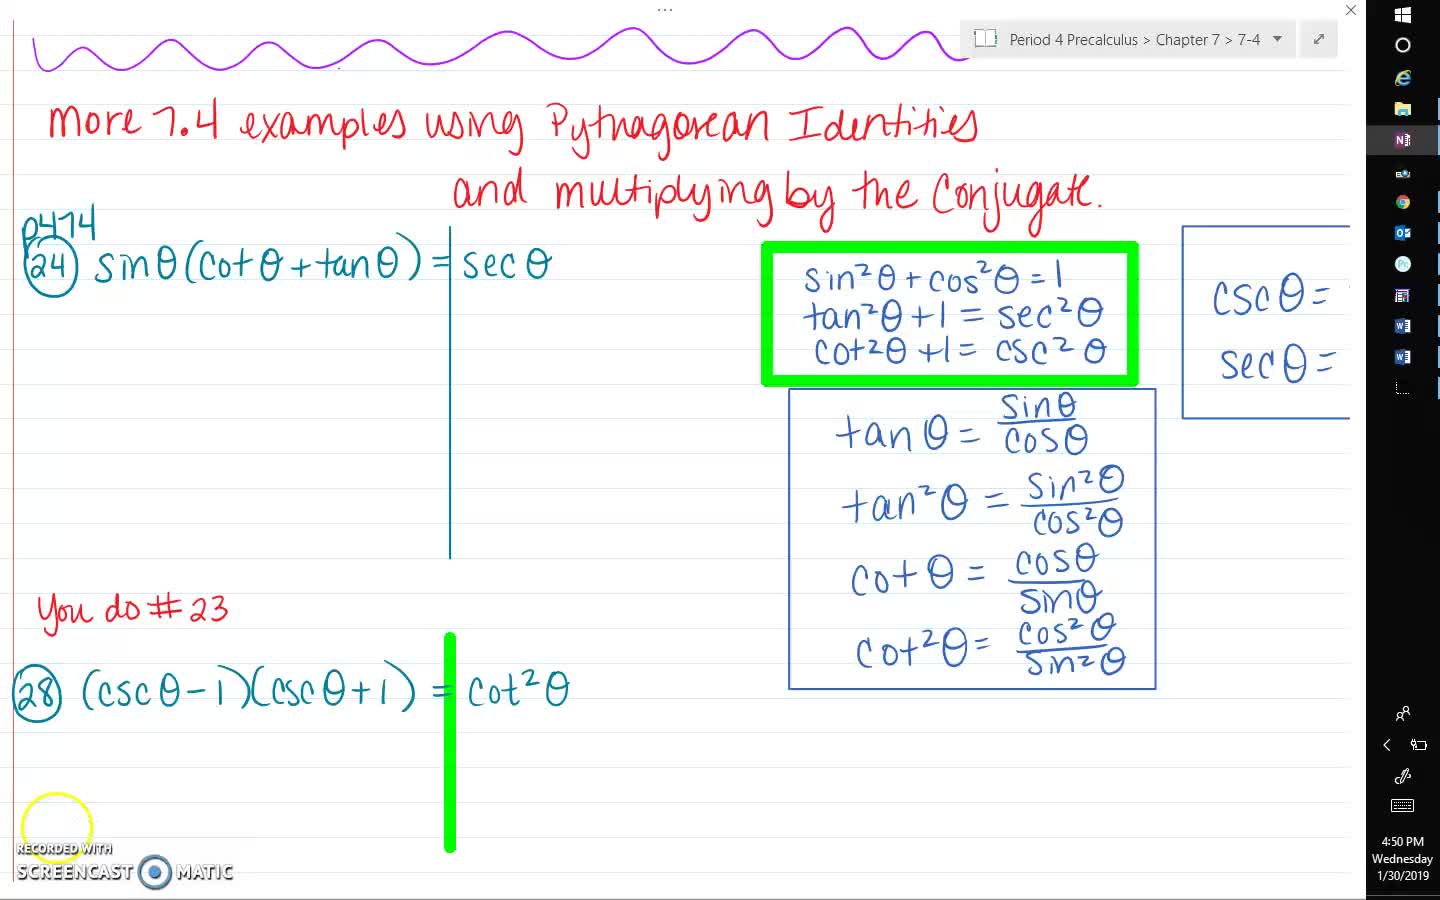 Period 4 Precalculus > Chapter 7 > 7-4
More 7.4 examples using Pythagorean Identities
and multiplying by the Conjugate.
p474
24 sinθ(cotθ+tanθ) = secθ
sin²θ + cos²θ = 1
tan²θ + 1 = sec²θ
cot²θ + 1 = csc²θ
cscθ =
secθ =
tanθ = sinθ/cosθ
tan²θ = sin²θ/cos²θ
cotθ = cosθ/sinθ
cot²θ = cos²θ/sin²θ
You do #23
28 (cscθ-1)(cscθ+1) = cot²θ
RECORDED WITH
SCREENCAST MATIC
4:50 PM
Wednesday
1/30/2019